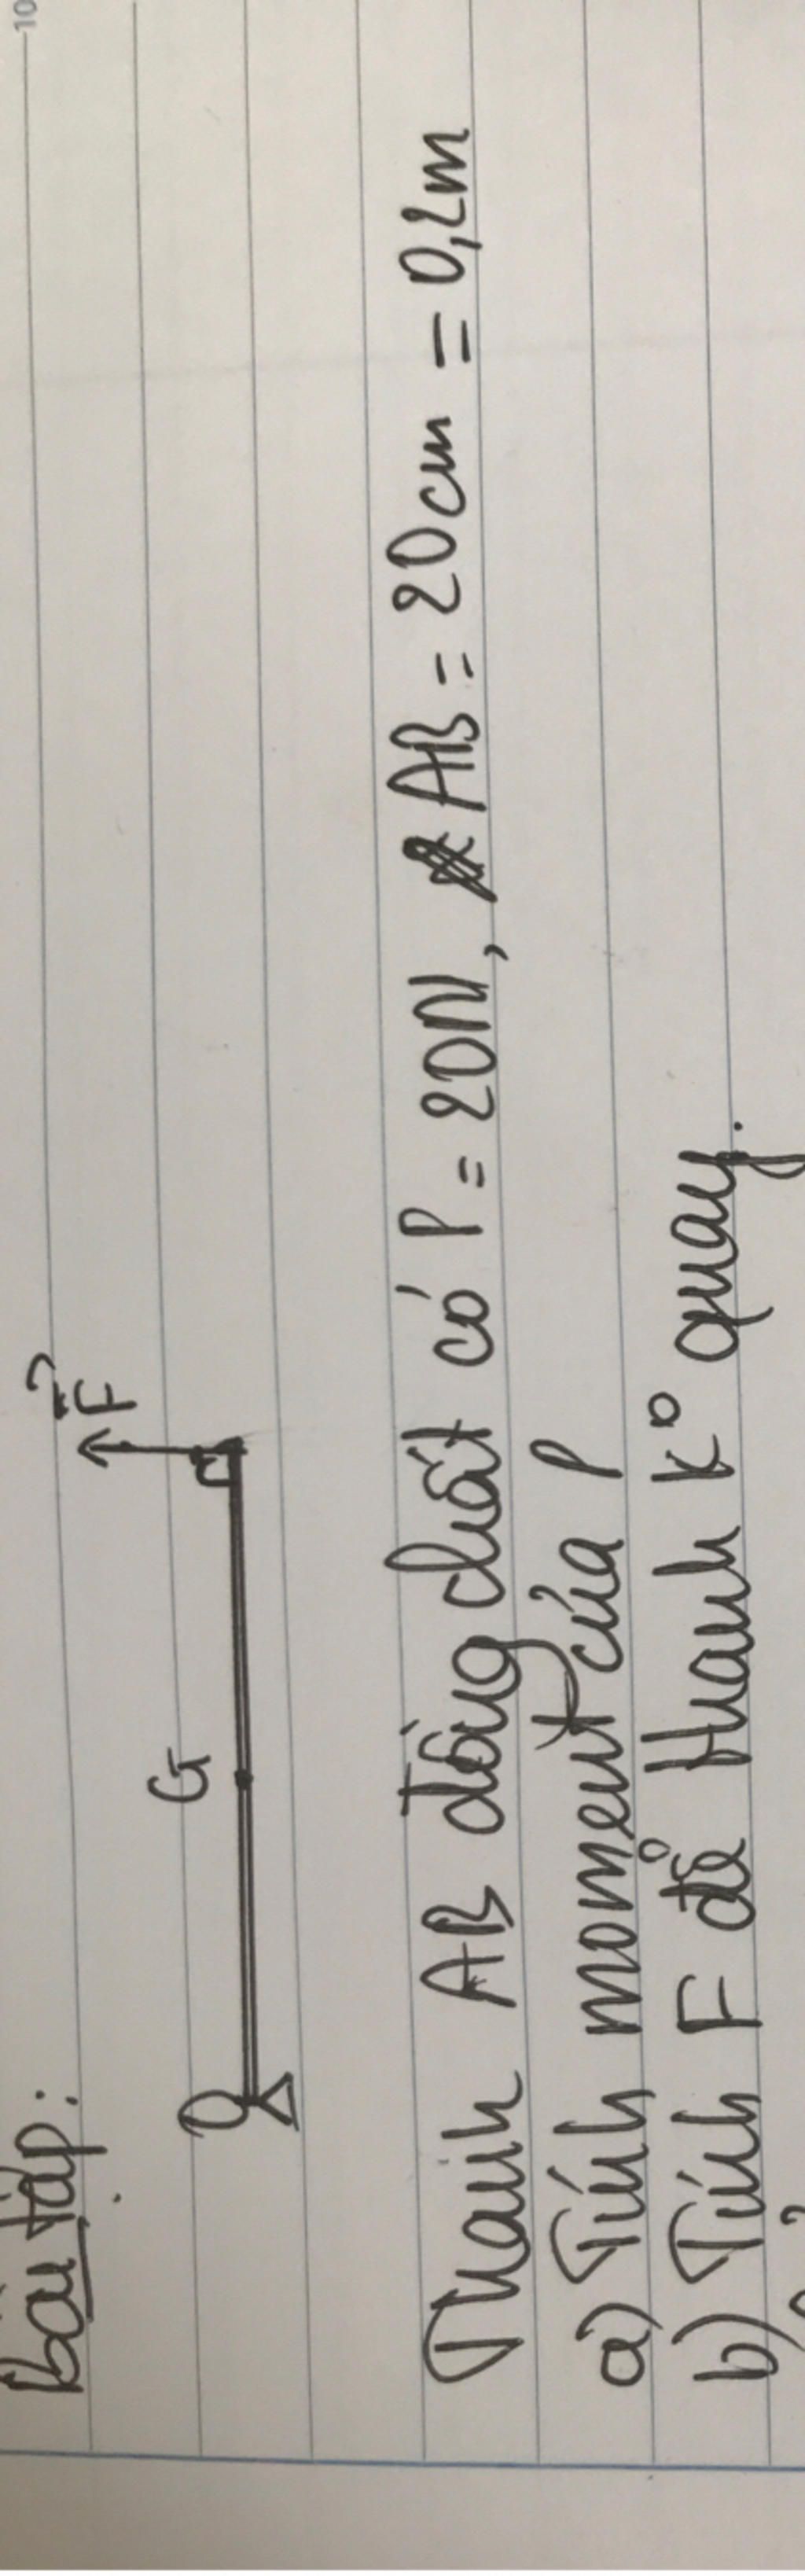 Bài tập:
G
F
O
Thanh AB đồng chất có P = 20N, AB = 20cm = 0,2m
a) Tính moment của P
b) Tính F để thanh k° quay.